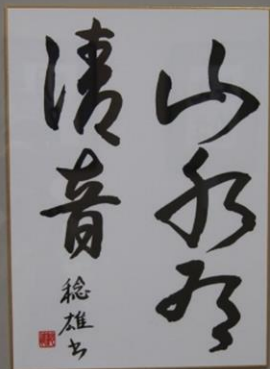 山水有
清音
稔雄書